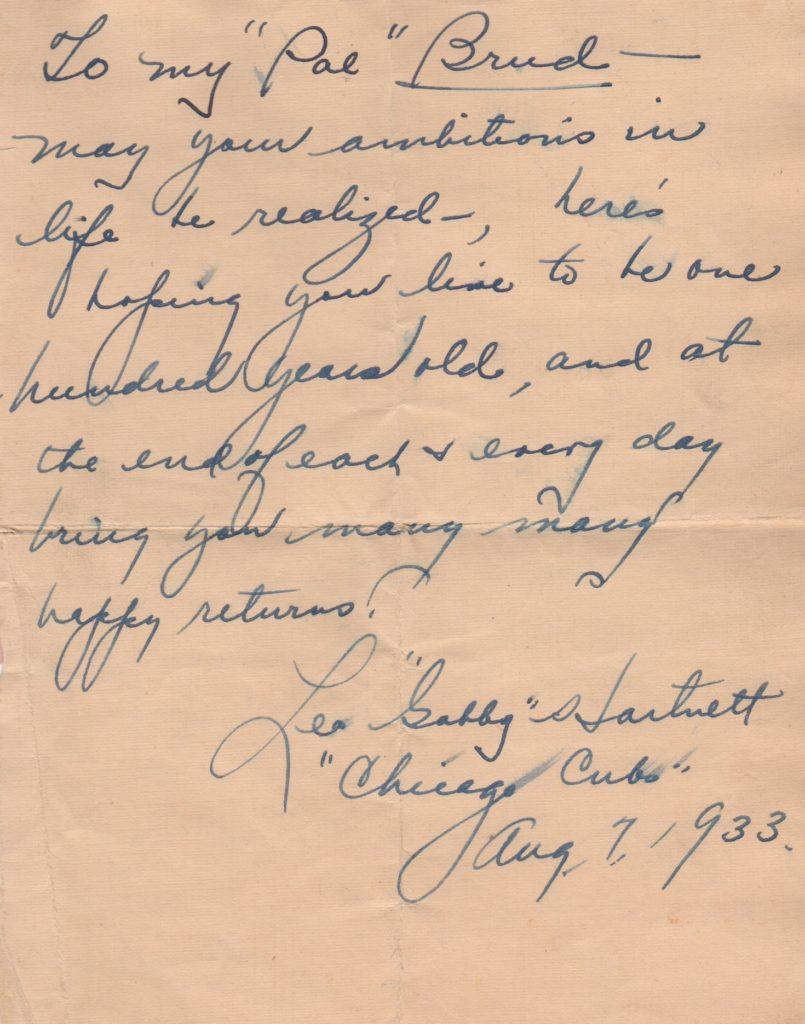 To my "Pal" Brud —
may your ambitions in
life be realized —, here's
hoping you live to be one
hundred years old, and at
the end of each & every day
bring you many many
happy returns.
Leo "Gabby" Hartnett
"Chicago Cubs"
Aug, 7, 1933.